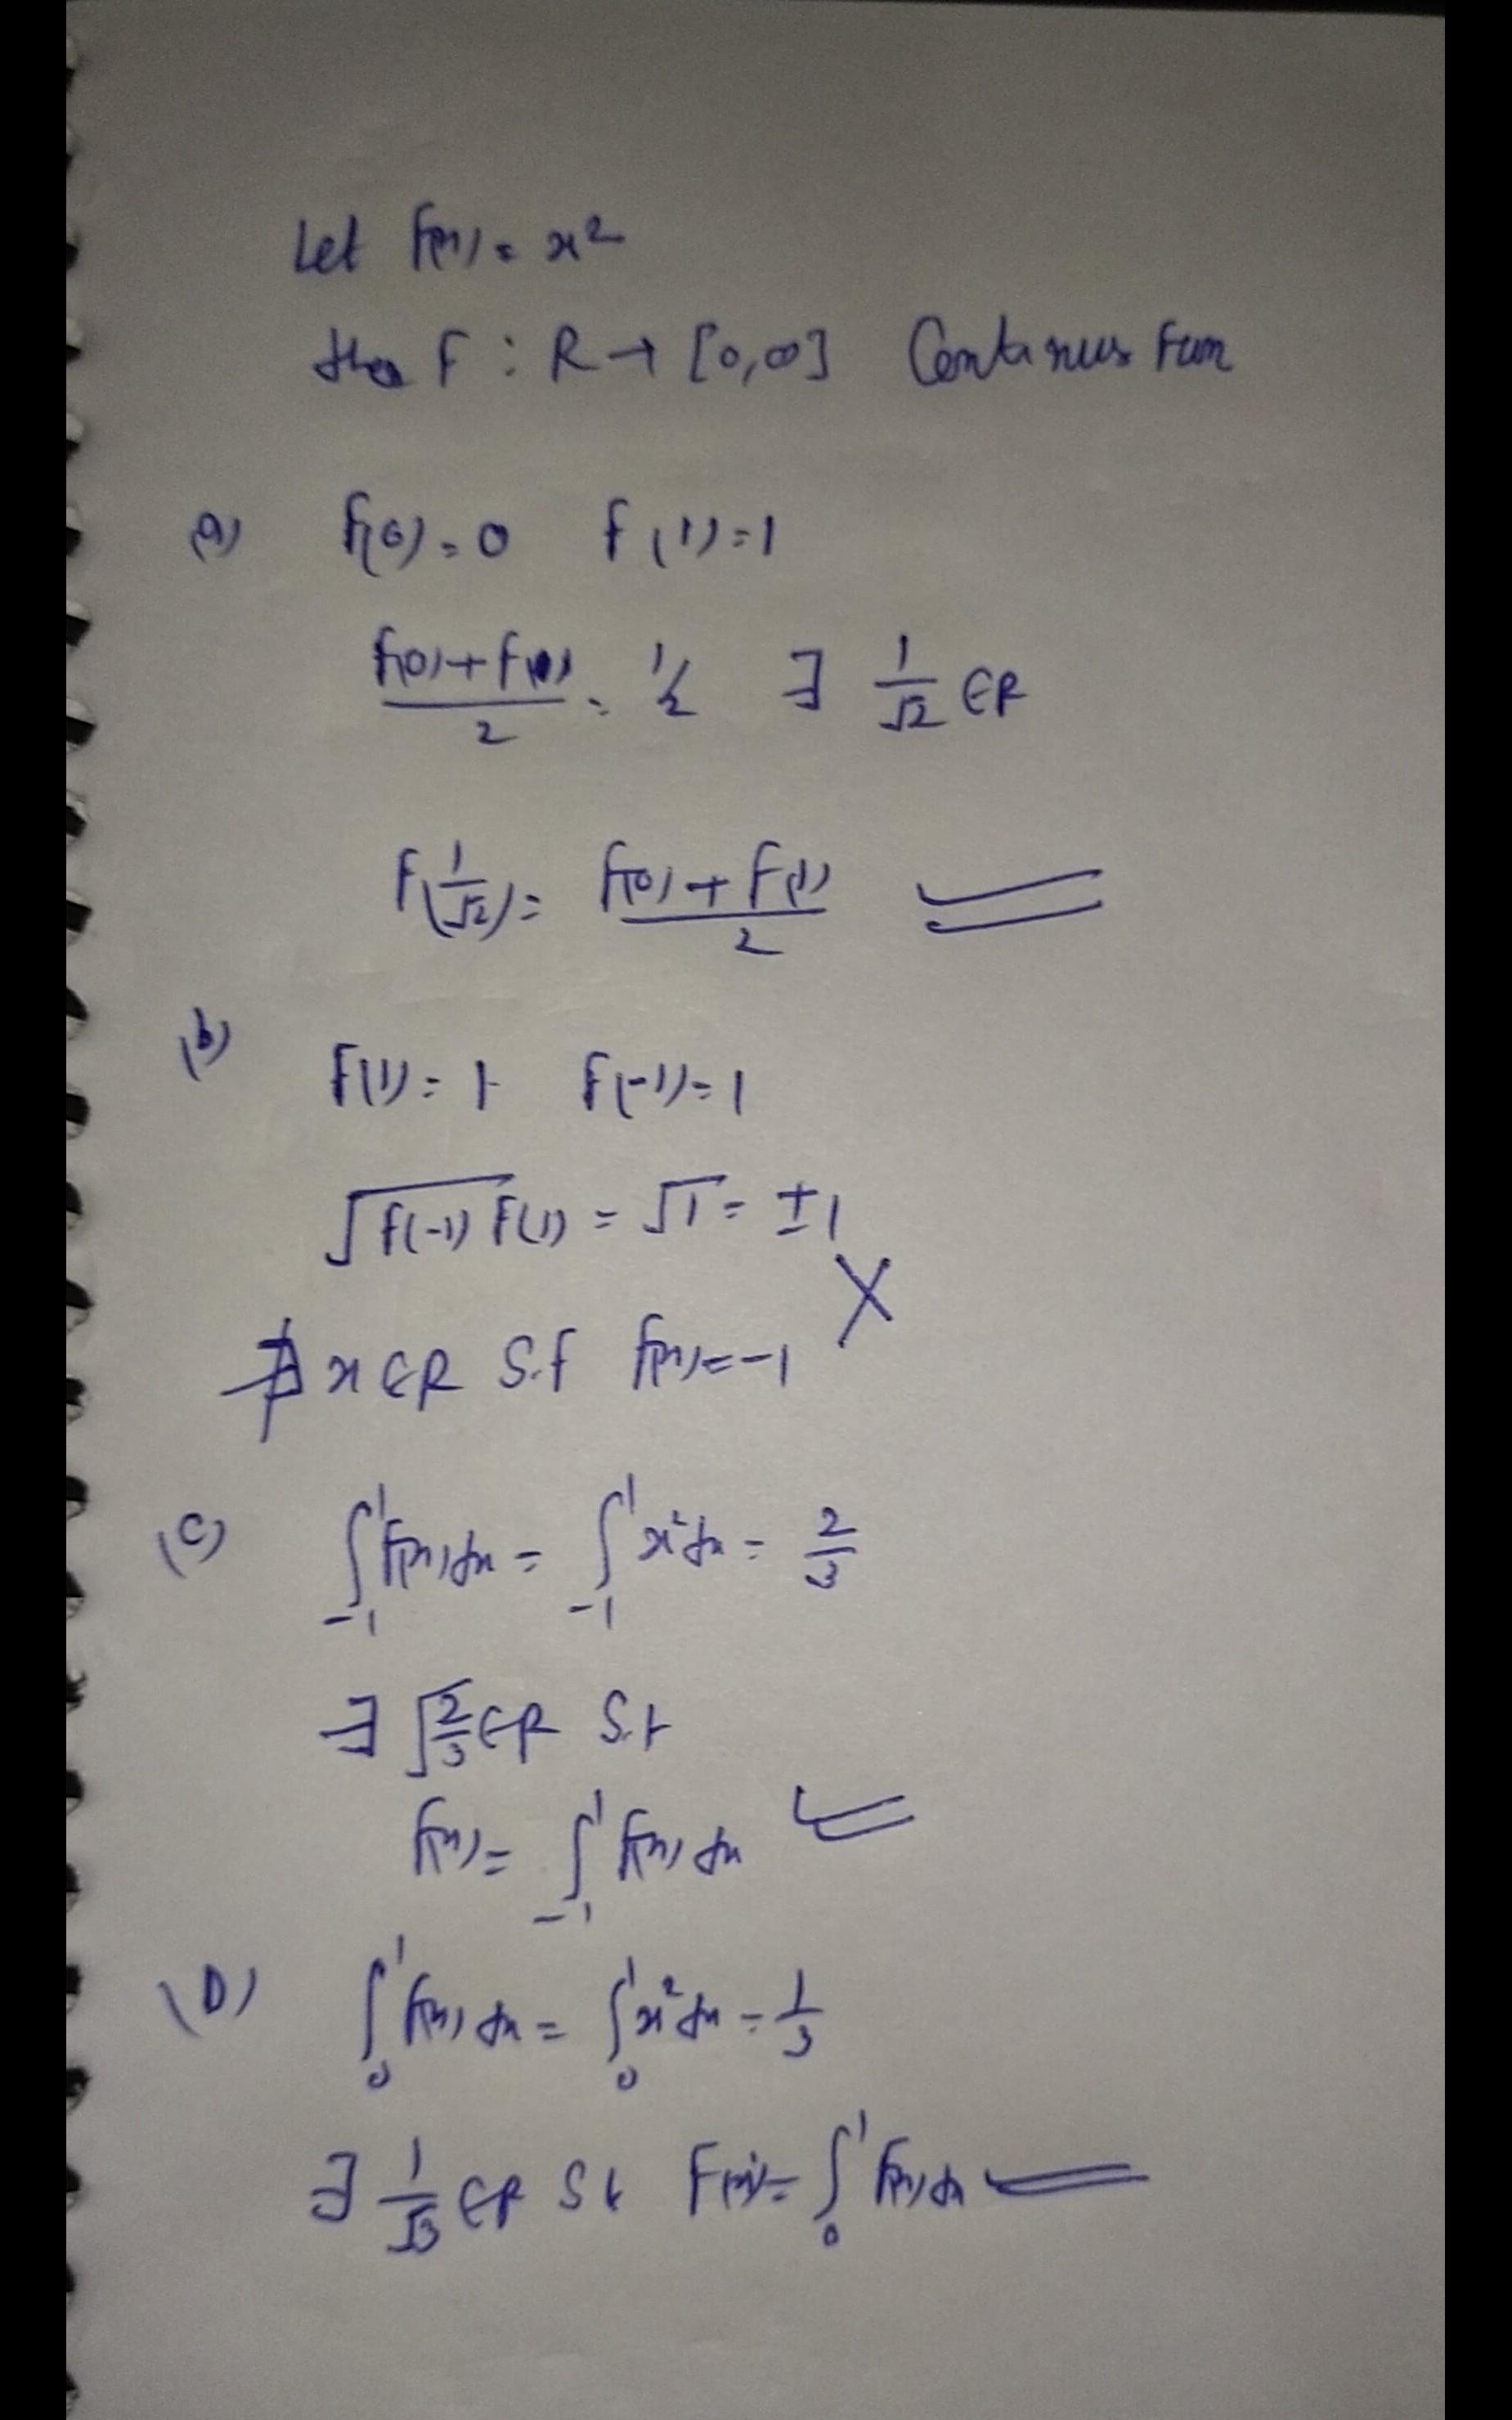 Let f(x) = x²
then F : R → [0,∞] Continuus Fun
(a) f(0) = 0 f(1) = 1
f(0) + f(1) / 2 = 1/2 ∃ 1/√2 ∈ R
F(1/√2) = f(0) + f(1) / 2
(b) f(1) = 1 f(-1) = 1
√f(-1) F(1) = √1 = ±1
X
∄ x ∈ R S.t f(x) = -1
(C) ∫₋₁¹ f(x) dx = ∫₋₁¹ x² dx = 2/3
∃ √2/3 ∈ R S.t
f(x) = ∫₋₁¹ f(x) dx
(D) ∫₀¹ f(x) dx = ∫₀¹ x² dx = 1/3
∃ 1/√3 ∈ R S.t F(x) = ∫₀¹ f(x) dx